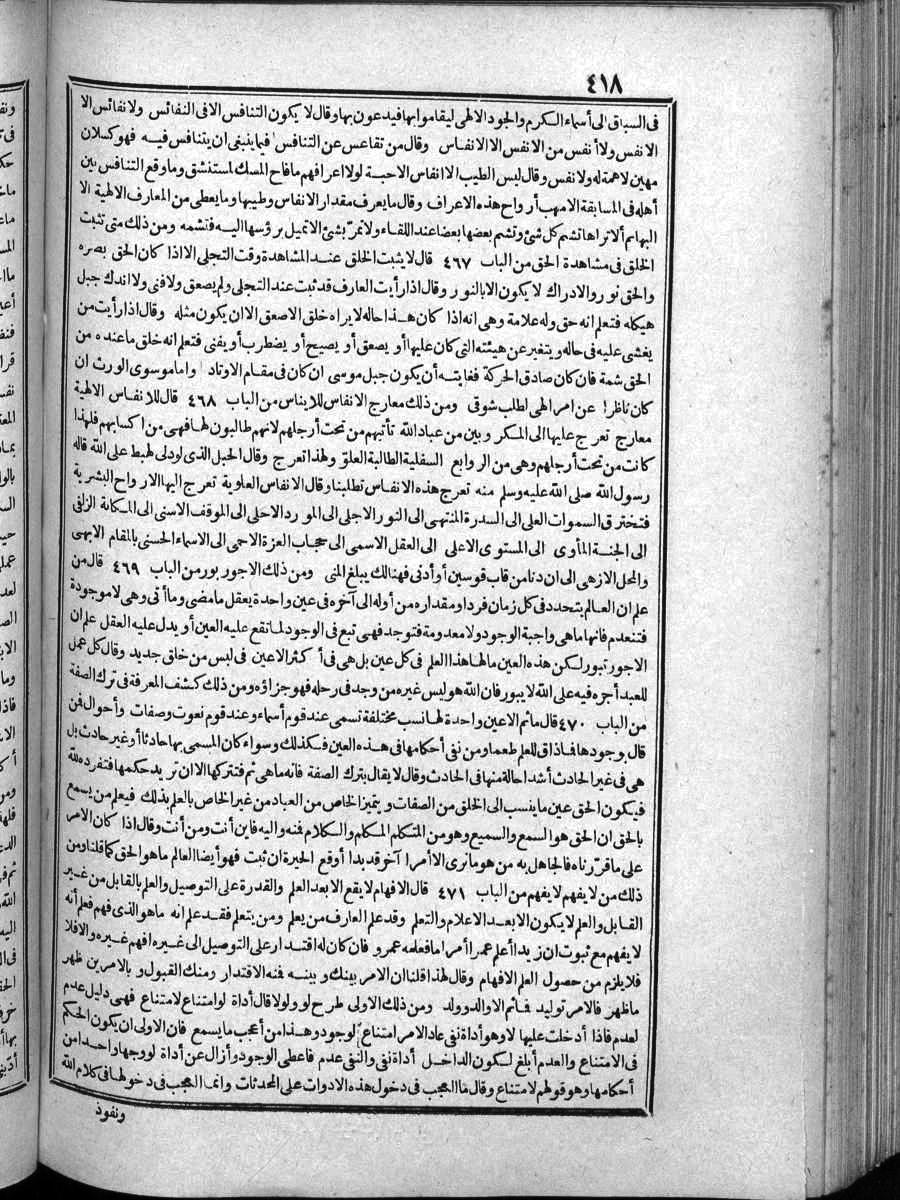 ٤١٨
فى السباق الى أسماء الكرم والجود الالهى ليقاموا بها فيدعون بها وقال لا يكون التنافس الا فى النفائس ولا نفائس الا
الانفس ولا أنفس من الانفس الا الانفاس وقال من تقاعس عن التنافس فيما ينبغى ان يتنافس فيه فهو كسلان
مهين لاهمة له ولا نفس وقال ليس الطيب الا انفاس الاحبة لولا اعرافهم ما فاح المسك لمستنشق وما وقع التنافس بين
أهله فى المسابقة الا مهب أرواح هذه الاعراف وقال ما يعرف مقدار الانفاس وطيبها وما يعطى من المعارف الالهية الا
البهائم ألا تراها تشم كل شئ وتشم بعضها بعضا عند اللقاء ولا تمر بشئ الا تميل برؤسها اليه فتشمه ومن ذلك متى تثبت
الخلق فى مشاهدة الحق من الباب ٤٦٧ قال لا يثبت الخلق عند المشاهدة وقت التجلى الا اذا كان الحق بصره
والحق نور والادراك لا يكون الا بالنور وقال اذا رأيت العارف قد ثبت عند التجلى ولم يصعق ولا فنى ولا اندك جبل
هيكله فتعلم انه حق وله علامة وهى انه اذا كان هذا حاله لا يراه خلق الا صعق الا ان يكون مثله وقال اذا رأيت من
يغشى عليه فى حاله ويتغير عن هيئته التى كان عليها أو يصعق أو يصيح أو يضطرب أو يفنى فتعلم انه خلق ما عنده من
الحق شمة فان كان صادق الحركة فغايته أن يكون جبل موسى ان كان فى مقام الاوتاد واما موسوى الورث ان
كان ناظرا عن امر الهى اطلب شوقى ومن ذلك معارج الانفاس للايناس من الباب ٤٦٨ قال للانفاس الالهية
معارج تعرج عليها الى المكر وبين من عباد الله تأتيهم من تحت أرجلهم لانهم طالبون لها فهى من اكسابهم فلهذا
كانت من تحت أرجلهم وهى من الروايع السفلية الطالبة العلو ولهذا تعرج وقال الحبل الذى لو دلى لهبط على الله قاله
رسول الله صلى الله عليه وسلم منه تعرج هذه الانفاس تطلبنا وقال الانفاس العلوية تعرج اليها الارواح البشرية
فتخترق السموات العلى الى السدرة المنتهى الى النور الاجلى الى المورد الاحلى الى الموقف الاسنى الى المكانة الزلفى
الى الجنة المأوى الى المستوى الاعلى الى العقل الاسمى الى حجاب العزة الاحمى الى الاسماء الحسنى بالمقام الابهى
والمحل الازهى الى ان دنا من قاب قوسين أو أدنى فهنالك يبلغ المنى ومن ذلك الاجور بور من الباب ٤٦٩ قال من
علم ان العالم يتجدد فى كل زمان فرد او مقداره من أوله الى آخره فى عين واحدة يعقل ما مضى وما أتى وهى لا موجودة
فتنعدم فانها ما هى واجبة الوجود ولا معدومة فتوجد فهى تبع فى الوجود لما تقع عليه العين أو يدل عليه العقل علم ان
الاجور تبور لكن هذه العين ما لها هذا العلم فى كل عين بل هى فى أكثر الاعين فى لبس من خلق جديد وقال كل عمل
للعبد أجره فيه على الله لا يبور فان الله هو ليس غيره من وجد فى رحله فهو جزاؤه ومن ذلك كشف المعرفة فى ترك الصفة
من الباب ٤٧٠ قال ما ثم الا عين واحدة لها نسب مختلفة تسمى عند قوم أسماء وعند قوم نعوت وصفات وأحوال فمن
قال بوجودها فما ذاق للعلم طعما ومن نفى أحكامها فى هذه العين فكذلك وسواء كان المسمى بها حادثا أو غير حادث بل
هى فى غير الحادث أشد احالة منها فى الحادث وقال لا يقال بترك الصفة فانه ما هى ثم فتتركها الا ان تريد حكمها فتفرده لله
فيكون الحق عين ما ينسب الى الخلق من الصفات ويتميز الخاص من العباد من غير الخاص بالعلم بذلك فيعلم من يسمع
بالحق ان الحق هو السمع والسميع وهو من المتكلم المكلم والكلام فمنه واليه فاين أنت ومن أنت وقال اذا كان الامر
على ما قررناه فالجاهل به من هو ما نرى الا أمرا آخر قد بدا أوقع الحيرة ان ثبت فهو أيضا العالم ما هو الحق كما قلنا ومن
ذلك من لا يفهم لا يفهم من الباب ٤٧١ قال الافهام لا يقع الا بعد العلم والقدرة على التوصيل والعلم بالقابل من غير
القابل والعلم لا يكون الا بعد الاعلام والتعلم وقد علم العارف من يعلم ومن يتعلم فقد علم انه ما هو الذى فهم فعلم أنه
لا يفهم مع ثبوت ان زيدا أعلم عمرا أمرا ما فعلمه عمرو فان كان له اقتدار على التوصيل الى غيره افهم غيره والا فلا
فلا يلزم من حصول العلم الافهام وقال لهذا قلنا ان الامر بينك وبينه فمنه الاقتدار ومنك القبول وبالامرين ظهر
ما ظهر فالامر توليد فما ثم الا والد وولد ومن ذلك الاولى طرح لو ولولا قال أداة لو امتناع لامتناع فهى دليل عدم
لعدم فاذا أدخلت عليها لا وهو أداة نفى عاد الامر امتناع لوجود وهذا من أعجب ما يسمع فان الاولى ان يكون الحكم
فى الامتناع والعدم أبلغ لكون الداخل أداة نفى والنفى عدم فاعطى الوجود وأزال عن أداة لو وجها واحدا من
أحكامها وهو قولهم لامتناع وقال ما العجب فى دخول هذه الادوات على المحدثات وانما العجب فى دخولها فى كلام الله
ونفوذ